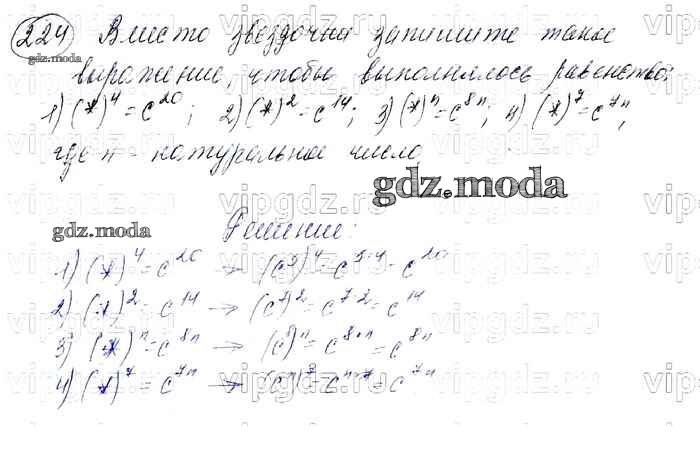 224 Вместо звездочки запишите такое
выражение, чтобы выполнялось равенство:
1) (*)⁴ = c²⁰; 2) (*)² = c¹⁴; 3) (*)ⁿ = c⁸ⁿ; 4) (*)⁷ = c⁷ⁿ,
где n - натуральное число.
gdz.moda
gdz.moda
gdz.moda
Решение:
1) (*)⁴ = c²⁰ → (c⁵)⁴ = c⁵·⁴ = c²⁰
2) (*)² = c¹⁴ → (c⁷)² = c⁷·² = c¹⁴
3) (*)ⁿ = c⁸ⁿ → (c⁸)ⁿ = c⁸·ⁿ = c⁸ⁿ
4) (*)⁷ = c⁷ⁿ → (cⁿ)⁷ = cⁿ·⁷ = c⁷ⁿ
vipgdz.ru